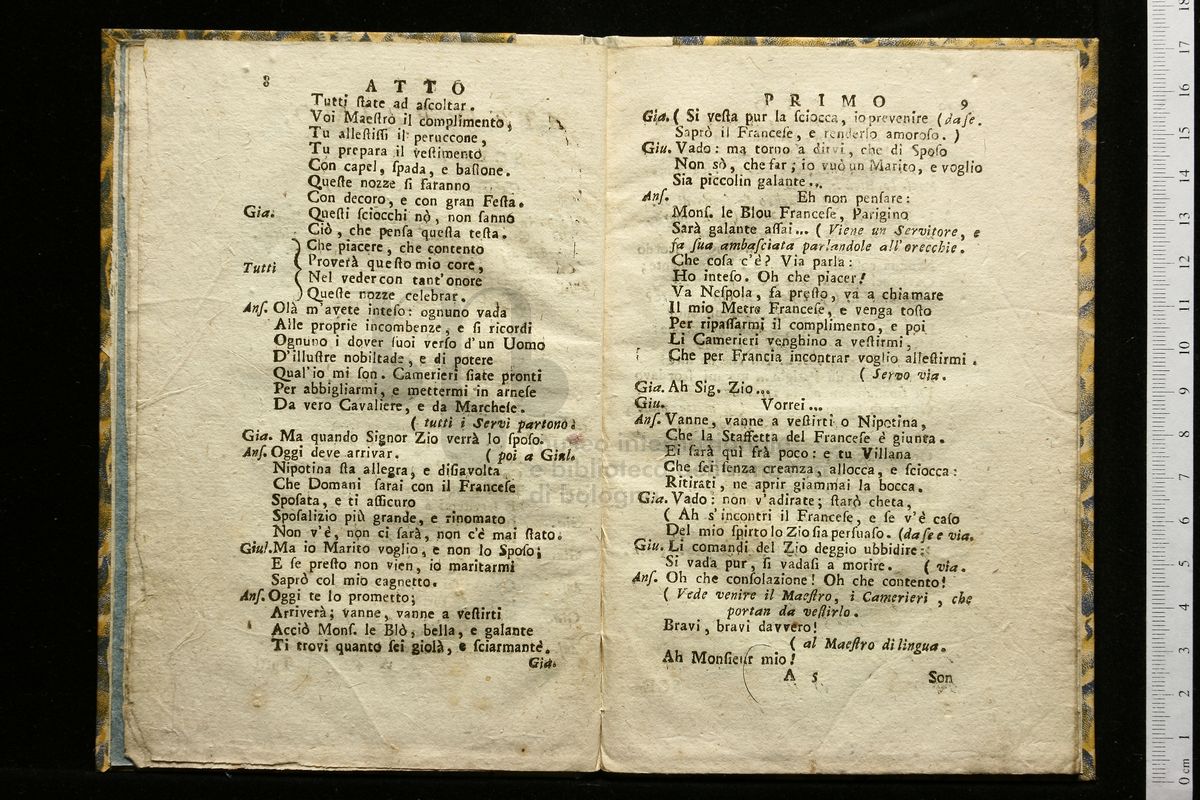 8 ATTO
Tutti ſtate ad aſcoltar.
Voi Maeſtro il complimento,
Tu alleſtiſſi il peruccone,
Tu prepara il veſtimento
Con capel, ſpada, e baſtone.
Queſte nozze ſi faranno
Con decoro, e con gran Feſta.
Gia. Queſti ſciocchi nò, non ſanno
Ciò, che penſa queſta teſta.
Tutti
Che piacere, che contento
Proverà queſto mio core,
Nel veder con tant'onore
Queſte nozze celebrar.
Anſ. Olà m'avete inteſo: ognuno vada
Alle proprie incombenze, e ſi ricordi
Ognuno i dover ſuoi verſo d'un Uomo
D'illuſtre nobiltade, e di potere
Qual'io mi ſon. Camerieri ſiate pronti
Per abbigliarmi, e mettermi in arneſe
Da vero Cavaliere, e da Marcheſe.
( tutti i Servi partono.
Gia. Ma quando Signor Zio verrà lo ſpoſo.
Anſ. Oggi deve arrivar. ( poi a Giul.
Nipotina ſta allegra, e diſiavolta
Che Domani ſarai con il Franceſe
Spoſata, e ti aſſicuro
Spoſalizio più grande, e rinomato
Non v'è, non ci ſarà, non c'è mai ſtato.
Giul. Ma io Marito voglio, e non lo Spoſo;
E ſe preſto non vien, io maritarmi
Saprò col mio cagnetto.
Anſ. Oggi te lo prometto;
Arriverà; vanne, vanne a veſtirti
Acciò Monſ. le Blò, bella, e galante
Ti trovi quanto ſei giolà, e ſciarmantè.
Gia.
PRIMO 9
Gia. ( Si veſta pur la ſciocca, io prevenire (da ſe.
Saprò il Franceſe, e renderlo amoroſo. )
Giu. Vado: ma torno a dirvi, che di Spoſo
Non sò, che far; io vuò un Marito, e voglio
Sia piccolin galante...
Anſ. Eh non penſare:
Monſ. le Blou Franceſe, Parigino
Sarà galante aſſai... ( Viene un Servitore, e
fa ſua ambaſciata parlandole all'orecchie.
Che coſa c'è? Via parla:
Ho inteſo. Oh che piacer!
Va Neſpola, fa preſto, va a chiamare
Il mio Metre Franceſe, e venga toſto
Per ripaſſarmi il complimento, e poi
Li Camerieri venghino a veſtirmi,
Che per Francia incontrar voglio alleſtirmi.
( Servo via.
Gia. Ah Sig. Zio...
Giu. Vorrei...
Anſ. Vanne, vanne a veſtirti o Nipotina,
Che la Staffetta del Franceſe è giunta.
Ei ſarà quì frà poco: e tu Villana
Che ſei ſenza creanza, allocca, e ſciocca:
Ritirati, ne aprir giammai la bocca.
Gia. Vado: non v'adirate; ſtarò cheta,
( Ah s'incontri il Franceſe, e ſe v'è caſo
Del mio ſpirto lo Zio ſia perſuaſo. (da ſe e via.
Giu. Li comandi del Zio deggio ubbidire:
Si vada pur, ſi vadaſi a morire. ( via.
Anſ. Oh che conſolazione! Oh che contento!
( Vede venire il Maeſtro, i Camerieri, che
portan da veſtirlo.
Bravi, bravi davvero!
( al Maeſtro di lingua.
Ah Monſieur mio!
A 5 Son